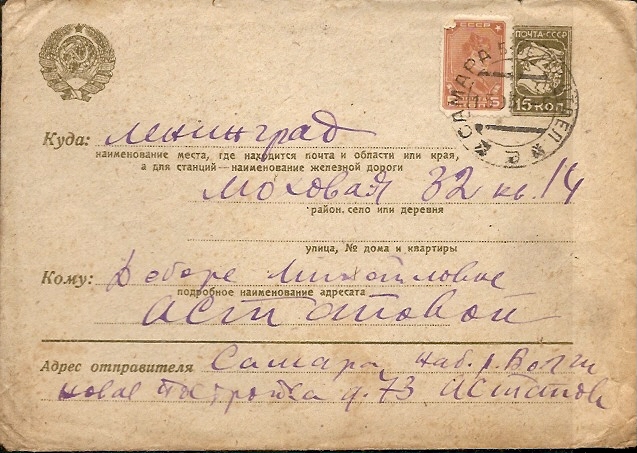 ПОЧТА-СССР
15 КОП.
САМАРА
Куда: Ленинград
наименование места, где находится почта и области или края,
а для станций—наименование железной дороги
Моховая 32 кв. 14
район, село или деревня
улица, № дома и квартиры
Кому: Деборе Михайловне
подробное наименование адресата
Астаповой
Адрес отправителя Самара наб. р. Волги
новая постройка д. 73 Астапов